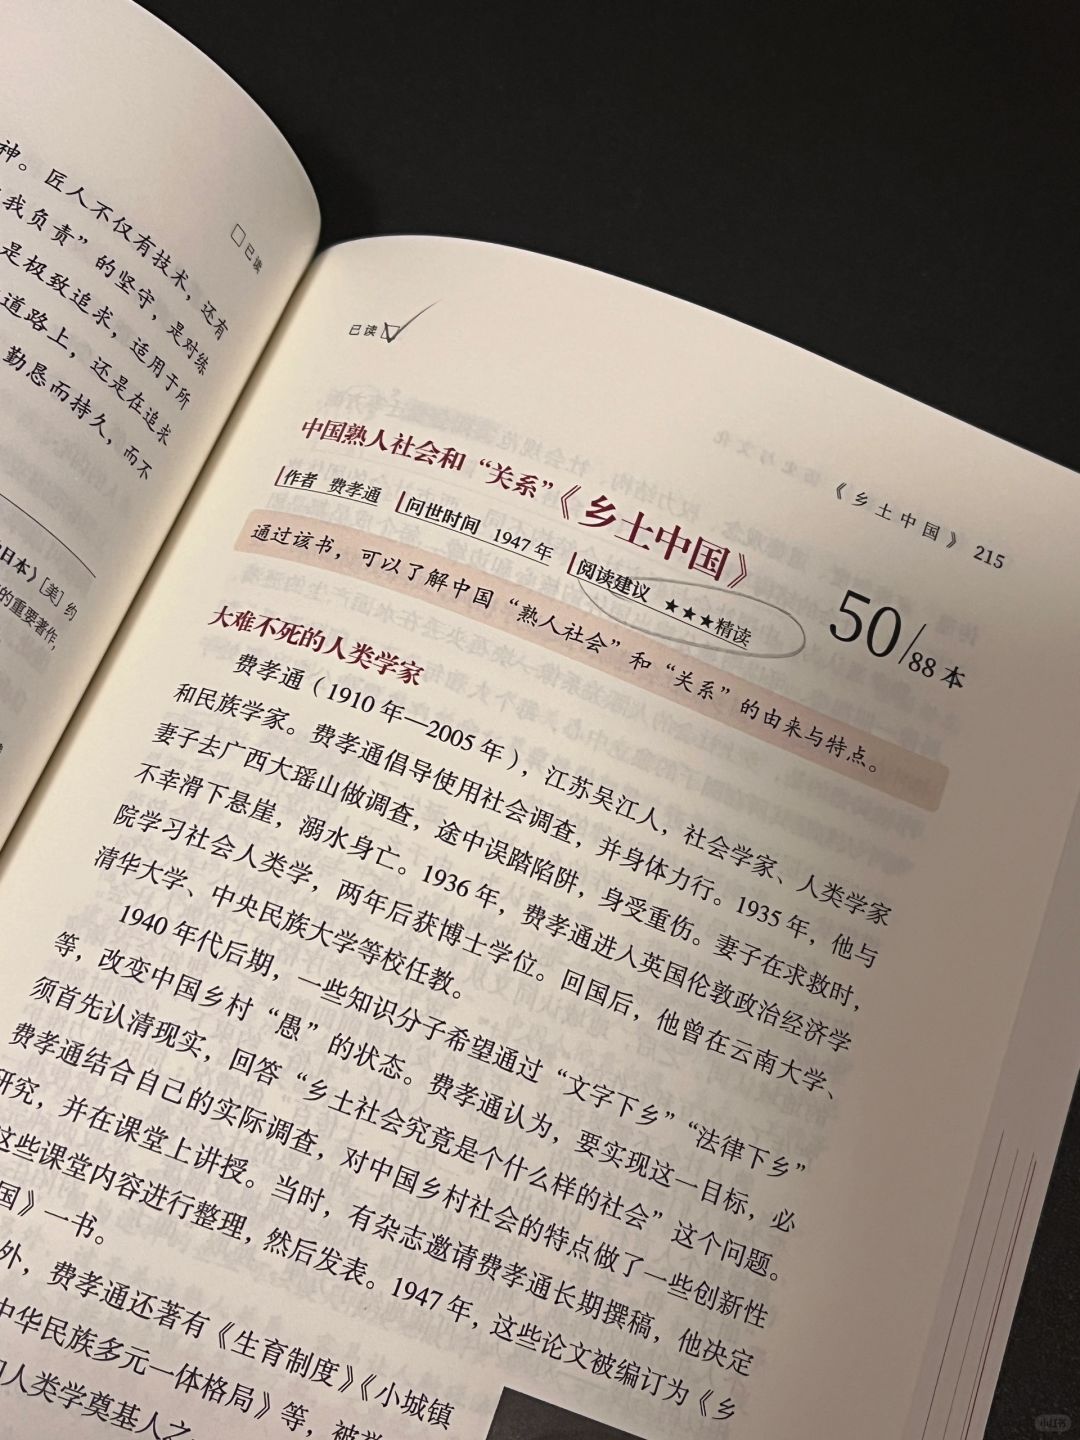 神。匠人不仅有技术，还有
我负责”的坚守，是对练
是极致追求，适用于所
道路上，还是在追求
勤恳而持久，而不
□已读
日本》[美]约
的重要著作，
已读
《乡土中国》 215
中国熟人社会和“关系”《乡土中国》
作者 费孝通 问世时间 1947年 阅读建议 ★★★精读
50/88本
通过该书，可以了解中国“熟人社会”和“关系”的由来与特点。
大难不死的人类学家
费孝通（1910年—2005年），江苏吴江人，社会学家、人类学家
和民族学家。费孝通倡导使用社会调查，并身体力行。1935年，他与
妻子去广西大瑶山做调查，途中误踏陷阱，身受重伤。妻子在求救时，
不幸滑下悬崖，溺水身亡。1936年，费孝通进入英国伦敦政治经济学
院学习社会人类学，两年后获博士学位。回国后，他曾在云南大学、
清华大学、中央民族大学等校任教。
1940年代后期，一些知识分子希望通过“文字下乡”“法律下乡”
等，改变中国乡村“愚”的状态。费孝通认为，要实现这一目标，必
须首先认清现实，回答“乡土社会究竟是个什么样的社会”这个问题。
费孝通结合自己的实际调查，对中国乡村社会的特点做了一些创新性
研究，并在课堂上讲授。当时，有杂志邀请费孝通长期撰稿，他决定
这些课堂内容进行整理，然后发表。1947年，这些论文被编订为《乡
国》一书。
外，费孝通还著有《生育制度》《小城镇
中华民族多元一体格局》等，被
人类学奠基人之
小红书